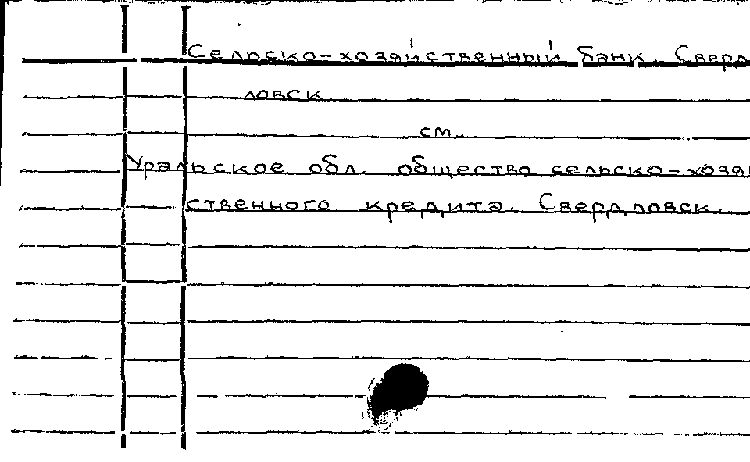 Сельско-хозяйственный банк. Сверд
ловск
см.
Уральское обл. общество сельско-хозяй
ственного кредита. Свердловск.